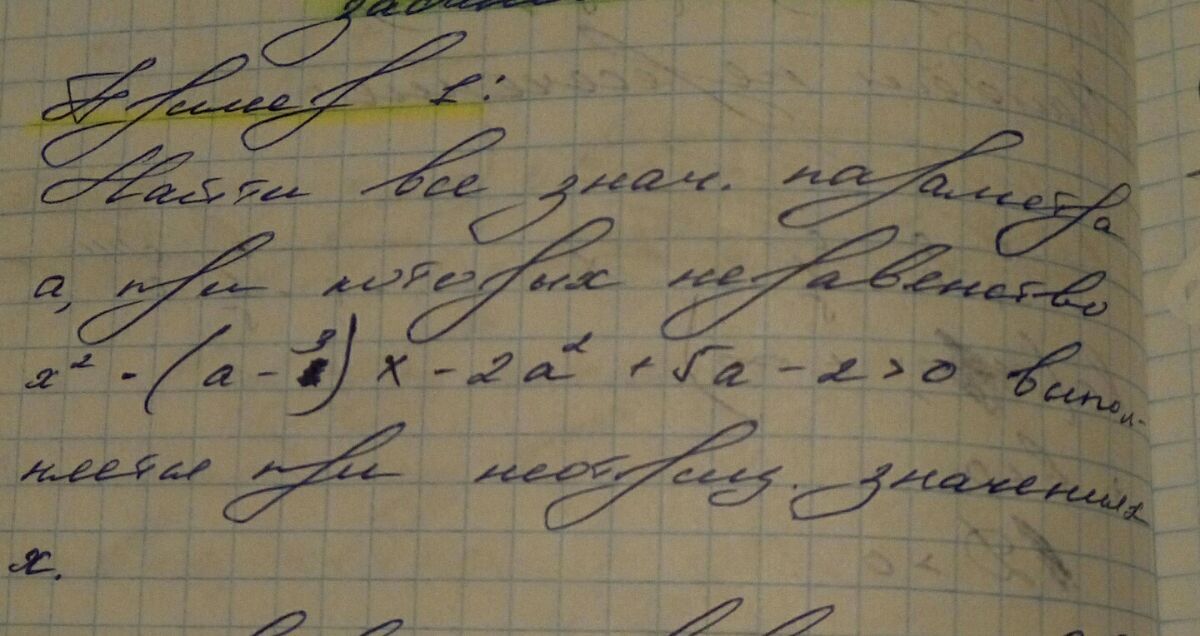 Пример 1:
Найти все знач. параметра
а, при которых неравенство
x² - (a - 3) x - 2a² + 5a - 2 > 0 выпол-
няется при неотриц. значениях
x.